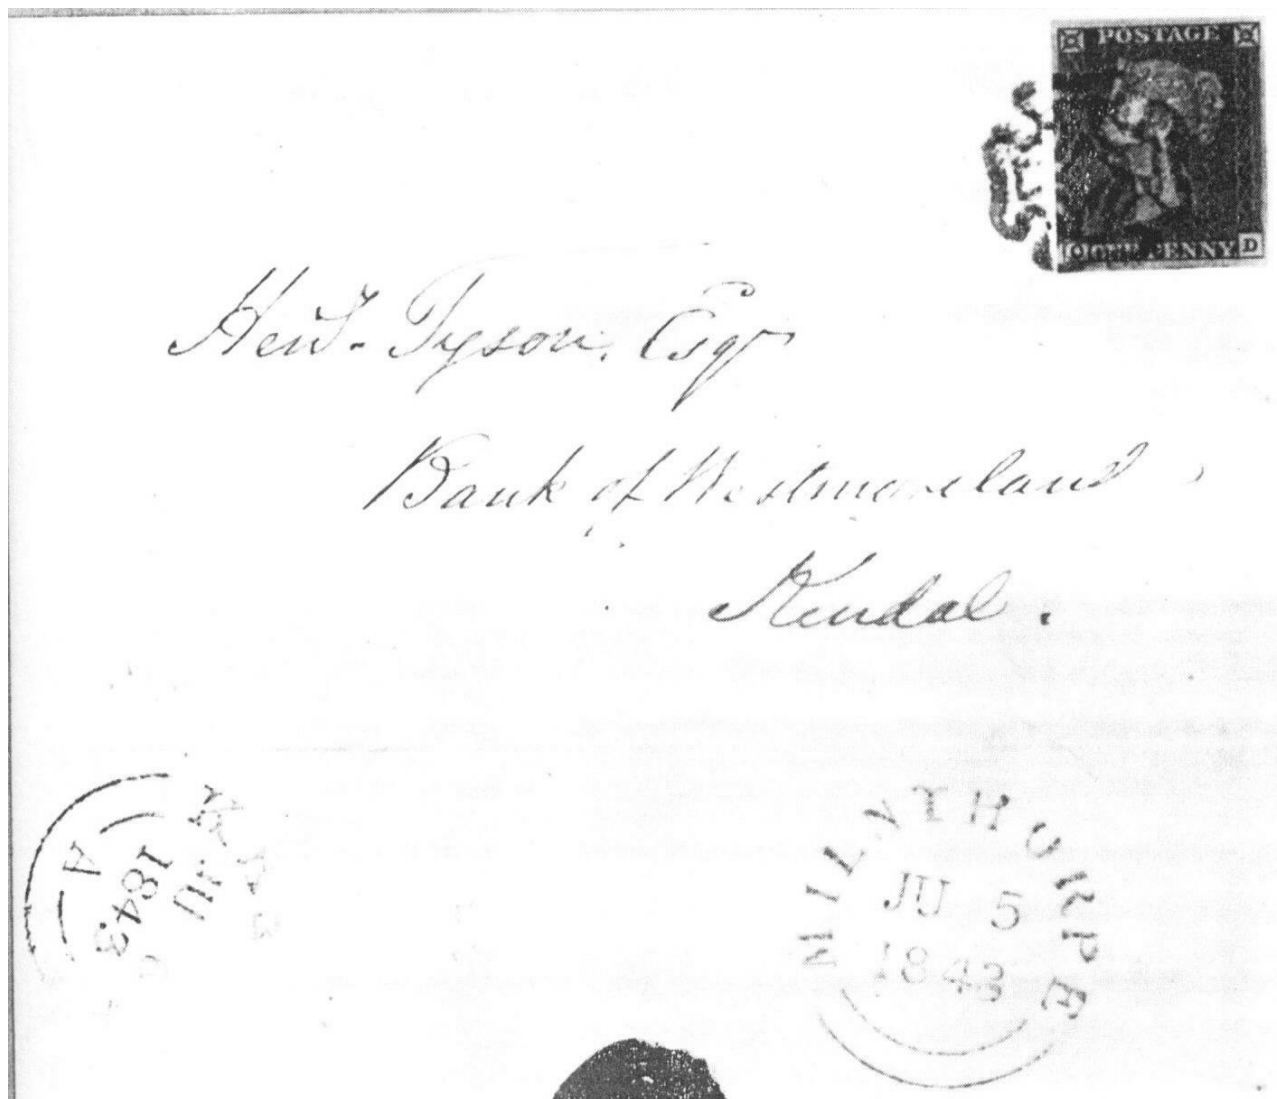 POSTAGE
ONE PENNY D
Henʸ. Tyson, Esqr
Bank of Westmoreland
Kendal.
A
1843
JU
MILNTHORPE
JU 5
1843